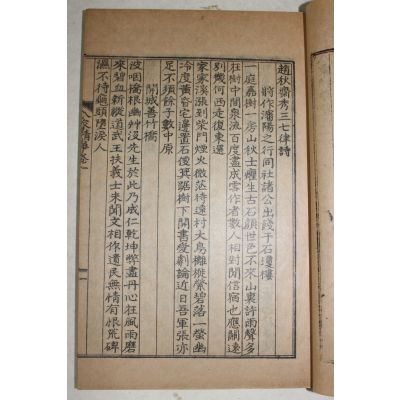 趙秋齋秀三七律詩
將作瀋陽之行同社諸公出餞于石瓊樓
一庭嘉樹一房山秋士生古石顔世色不來山裏許雨聲多
在樹中間泉流百度盡成雲作者數人相對閒信宿也應關遠
別幾何西走復東還
家家溪漲到柴門煙火微茫待遠村大鳥離縈碧落一螢幽
冷度黃昏宅邊置石箕踞樹下開書受劇論近日吾軍張亦
足不須餘子數中原
開城善竹橋
波咽橋根幽艸沒先生於此乃成仁乾坤弊盡丹心在風雨磨
來碧血新縱道武王扶義士未聞文相作遺民無情有恨荒碑
濕不待龜頭墮淚人
八家精華卷一